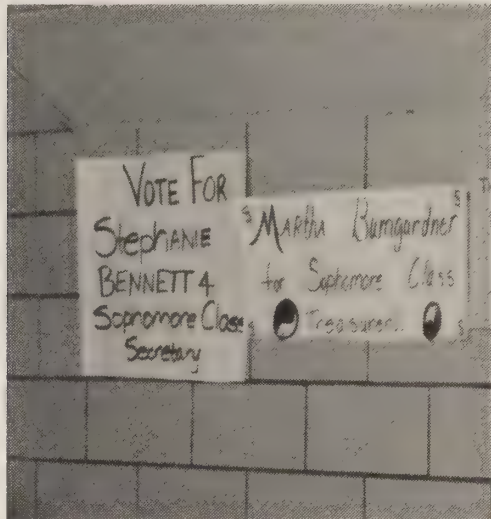 VOTE FOR
StephANIE
BENNETT 4
Sophomore Class
Secretary
$ MARthA Bumgardner $
for Sophomore Class
$ Treasurer.. $